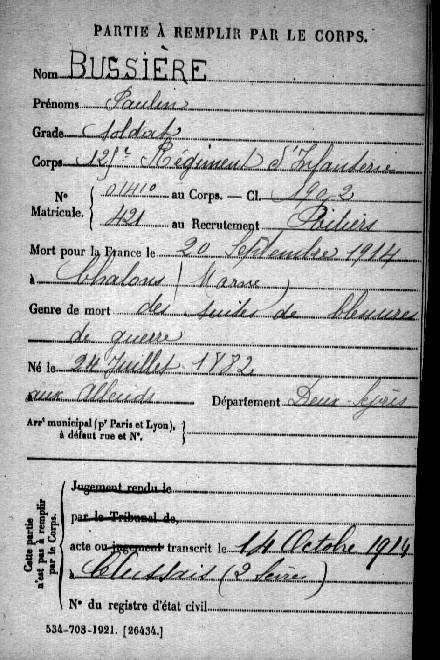 PARTIE À REMPLIR PAR LE CORPS.
Nom BUSSIÈRE
Prénoms Paulin
Grade soldat
Corps 125e Régiment d'Infanterie
No Matricule. 01410 au Corps. — Cl. 1902
421 au Recrutement Poitiers
Mort pour la France le 20 Septembre 1914
à Chalons (Marne)
Genre de mort des suites de blessures
de guerre
Né le 24 Juillet 1882
aux Alleuds Département Deux-Sèvres
Arrt municipal (pr Paris et Lyon),
à défaut rue et No.
Cette partie
n'est pas à remplir
par le Corps.
Jugement rendu le
par le Tribunal de
acte ou jugement transcrit le 14 Octobre 1914
à Clussais (2 Sèvres)
No du registre d'état civil
534-708-1921. [26434.]